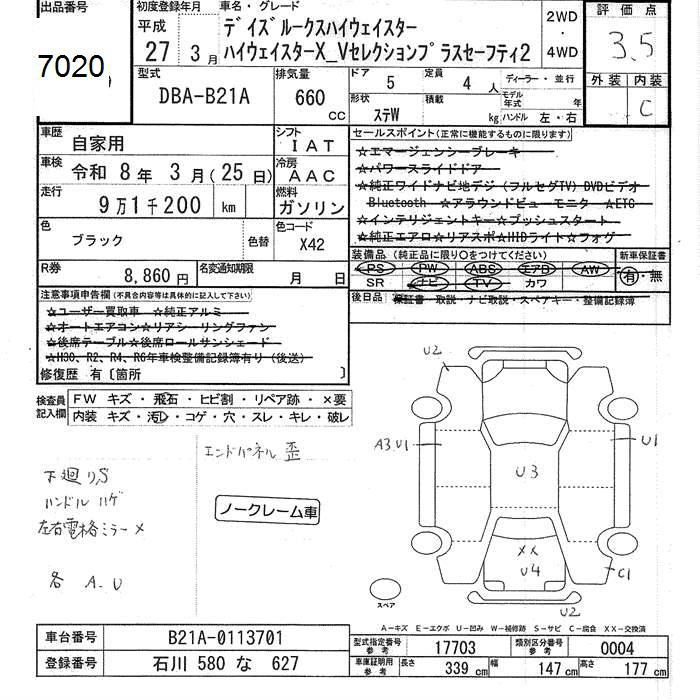 出品番号
7020
初度登録年月
平成
27 3月
車名・グレード
デイズルークスハイウェイスター
ハイウェイスターX_Vセレクションプラスセーフティ2
2WD
・
4WD
評価点
3.5
外装 内装
C
型式
DBA-B21A
排気量
660
cc
ドア
5
定員
4
人
ディーラー・並行
形状
ステW
積載
kg
モデル年式
年
ハンドル 左・右
車歴
自家用
シフト
IAT
車検
令和 8年 3月(25日)
冷房
AAC
走行
9万1千200 km
燃料
ガソリン
色
ブラック
色替
色コード
X42
R券
8,860円
名変通知期限
月 日
セールスポイント(正常に機能するものに限ります)
☆エマージェンシーブレーキ
☆パワースライドドア
☆純正ワイドナビ地デジ(フルセグTV) DVDビデオ
Bluetooth ☆アラウンドビューモニタ ☆ETC
☆インテリジェントキー☆プッシュスタート
☆純正エアロ☆リアスポ☆HIDライト☆フォグ
装備品(純正品に限り○をつけてください)
PS PW ABS エアB AW
SR ナビ TV カワ
新車保証書
有・無
後日品
保証書・取説・ナビ取説・スペアキー・整備記録簿
注意事項申告欄(不具合内容等は具体的に記入して下さい)
☆ユーザー買取車 ☆純正アルミ
☆オートエアコン☆リアシーリングファン
☆後席テーブル☆後席ロールサンシェード
☆H30、R2、R4、R6年車検整備記録簿有り(後送)
修復歴 有〔箇所 〕
検査員記入欄
FW キズ・飛石・ヒビ割・リペア跡・×要
内装 キズ・汚レ・コゲ・穴・スレ・キレ・破レ
エンドパネル 歪
下廻りS
ハンドル ハゲ
左右電格ミラー ×
各 A.U
ノークレーム車
U2
A3.U1
U1
U3
XX
U4
C1
U2
スペア
A－キズ E－エクボ U－凹み W－補修跡 S－サビ C－腐食 XX－交換済
車台番号
B21A-0113701
登録番号
石川 580 な 627
型式指定番号
参考
17703
類別区分番号
参考
0004
車庫証明用
参考
長さ
339 cm
幅
147 cm
高さ
177 cm